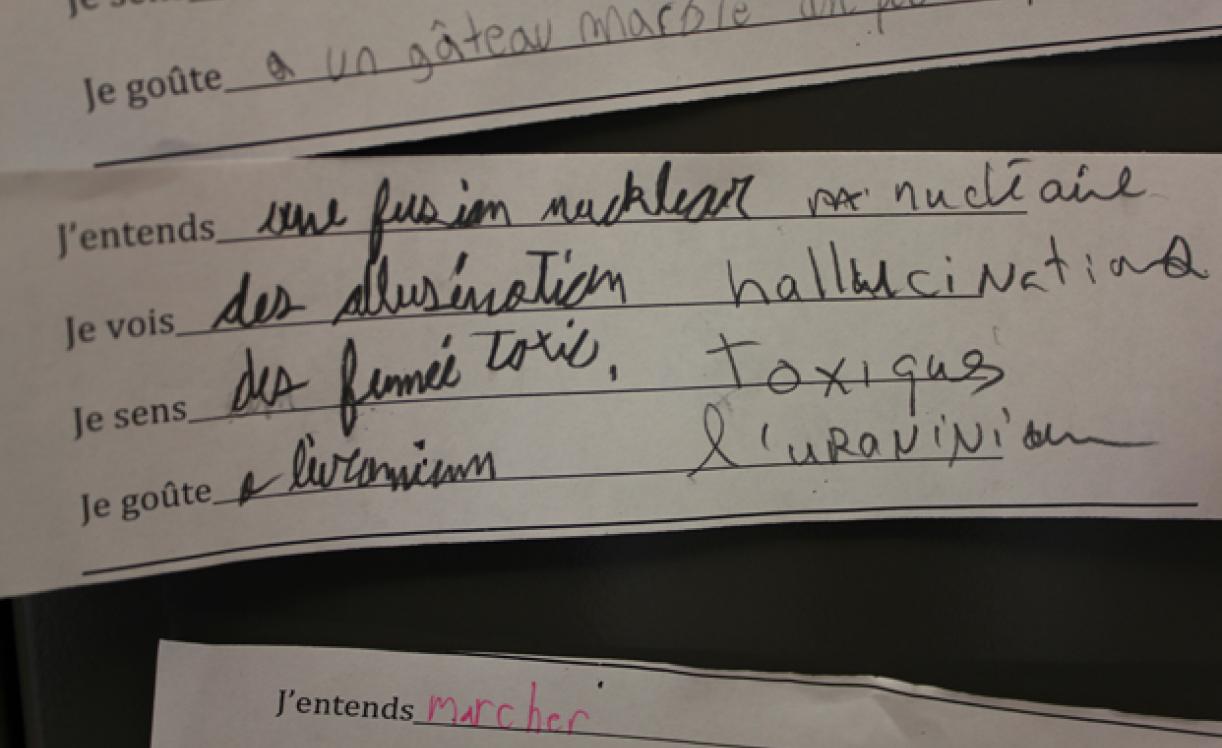 Je
Je goûte a un gâteau marble un
J'entends une fusion nucklear nucléaire
Je vois des allusination hallucinations
Je sens des fumée toxic, toxiques
Je goûte a l'uranium l'uraniNium
J'entends marcher